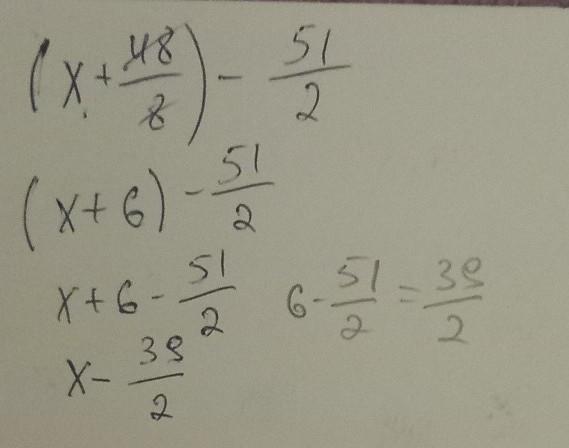 (x + 48/8) - 51/2
(x + 6) - 51/2
x + 6 - 51/2    6 - 51/2 = 39/2
x - 39/2